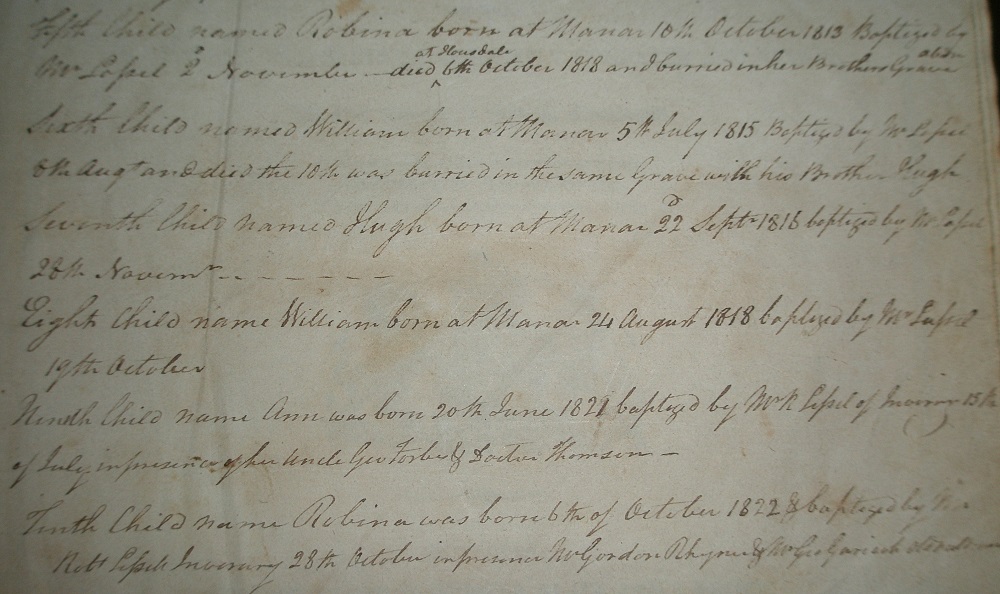 Fifth Child named Robina born at Manar 10th October 1813 Baptized by
Mr Lessel 2d November - died at 6th October 1818 and burried in her Brothers Grave
Sixth Child named William born at Manar 5th July 1815 Baptized by Mr Lessel
8th Augt and died the 10th was burried in the same Grave with his Brother Hugh
Seventh Child named Hugh born at Manar 22d Septr 1816 baptized by Mr Lessel
28th Novemr - - - - - - -
Eight Child name William born at Manar 24 August 1818 baptized by Mr Lessel
19th October
Nineth Child name Ann was born 20th June 1821 baptized by Mr R Lessel of 15th
of July in presence of her Uncle Geo Forbes & Doctor Thomson -
Tenth Child name Robina was born 6th of October 1822 & baptized by
Robt Lessel Inverury 28th October in presence Mr Gordon Rhynie & Mr Geo